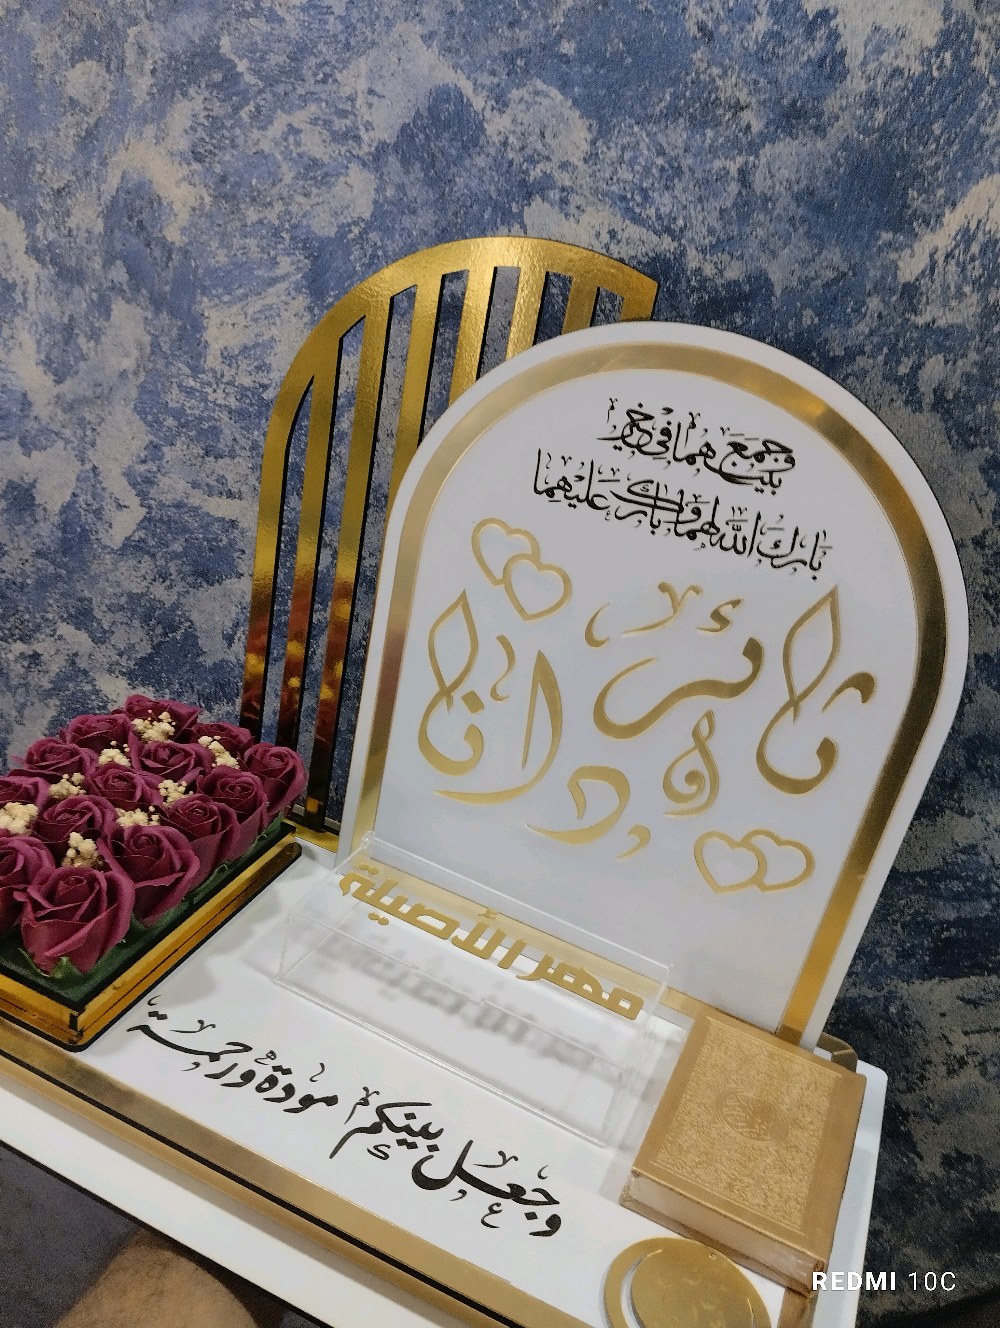 وجمع بينهما في خير
بارك الله لهما وبارك عليهما
ثائر
و
دانا
مهر الأصيلة
وجعل بينكم مودة ورحمة
REDMI 10C